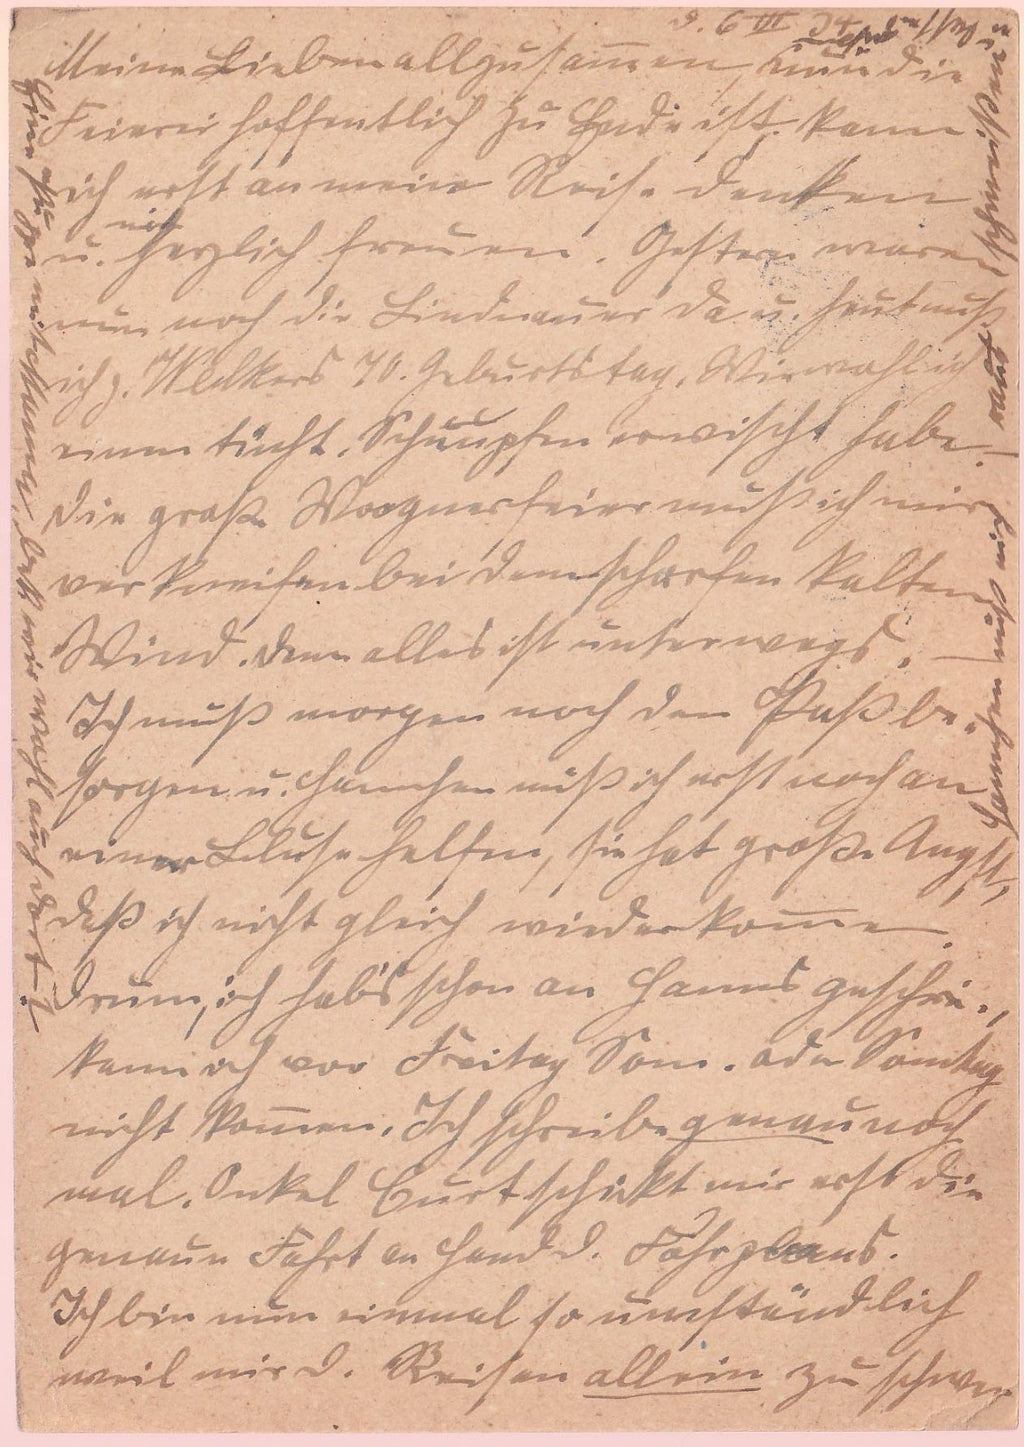 d. 6 III 34
Meine Lieben allzusam̅en, nun die
Feierei hoffentlich zu Ende ist, kann
ich erst an meine Reise denken
u. mich herzlich freuen. Gestern waren
nun noch die Lindenauer da u. heut muß
ich z. Welkers 70. Geburtstag. Wie wohl ich
einen tücht. Schnupfen erwischt habe. –
Die große Wagnerfeier muß ich mir
verkneifen bei dem scharfen kalten
Wind. Denn alles ist unterwegs. –
Ich muß morgen noch den Paß be-
sorgen u. Hannchen muß ich erst noch an
einer Bluse helfen, sie hat große Angst,
daß ich nicht gleich wiederkom̅e.
Drum, ich hab's schon an Hanns geschrie.,
kann ich vor Freitag Sonn. oder Sonntag
nicht kom̅en. Ich schreibe genau noch
mal. Onkel Curt schickt mir erst die
genaue Fahrt an Hand d. Fahrplans.
Ich bin nun einmal so umständlich
weil mir d. Reisen allein zu schwer
mit wir wohl auch dort?